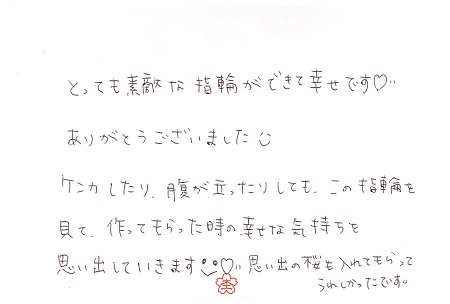 とっても素敵な指輪ができて幸せです♡
ありがとうございました
ケンカしたり、腹が立ったりしても、この指輪を
見て、作ってもらった時の幸せな気持ちを
思い出していきます♡思い出の桜も入れてもらって
うれしかったです。